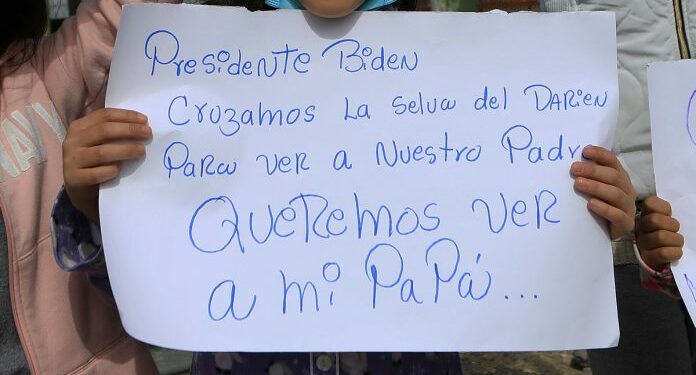 Presidente Biden
Cruzamos la selva del DARIEN
Para ver a Nuestro Padre
Queremos ver
a mi PaPá...
NAVY